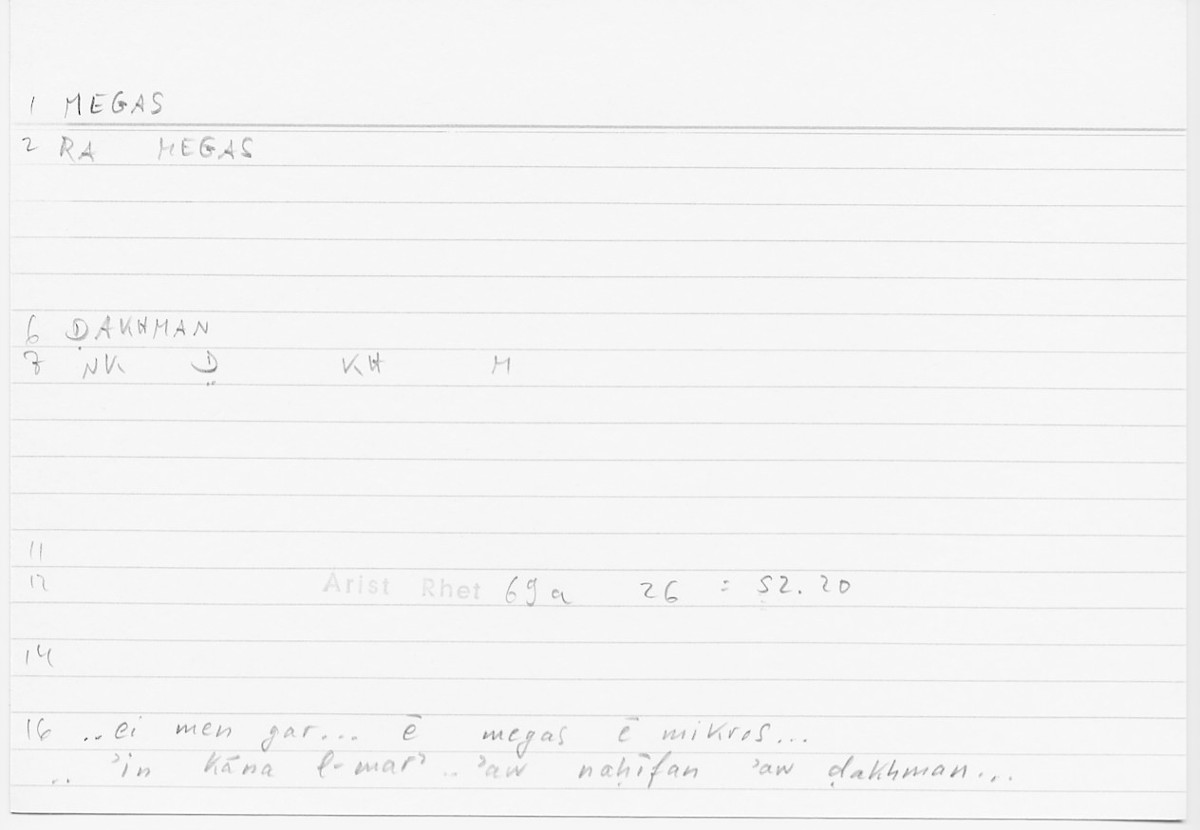 1 MEGAS
2 RA MEGAS
6 ḌAKHMAN
7 NK Ḍ KH M
11
12 Arist Rhet 69a 26 = 52.20
14
16 ..ei men gar... ē megas ē mikros...
.. ʾin kāna l-marʾ .. ʾaw naḥīfan ʾaw ḍakhman...